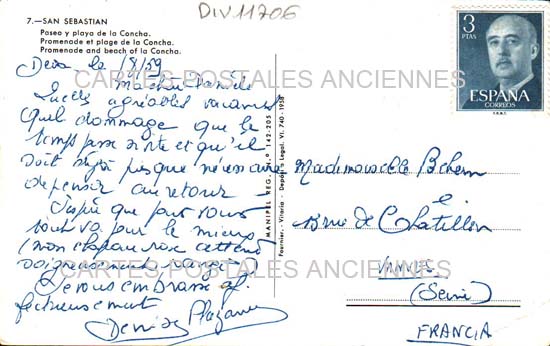 DIV11706
7.—SAN SEBASTIAN
Paseo y playa de la Concha.
Promenade et plage de la Concha.
Promenade and beach of la Concha.
Deva le 1/8/59
CARTES POSTALES ANCIENNES
agréables vacances
Quel dommage que le
temps passe si vite et qu'il
soit déjà presque nécessaire
de penser au retour -
J'espère que pour vous
tout va pour le mieux
(mon chapeau rose attend
soigneusement rangé)
CARTES POSTALES ANCIENNES
Je vous embrasse af
fectueusement
Denise
MANIPEL REG. Nº 142-205
Fournier. - Vitoria. - Depósito Legal. VI. 740.-1958
3
PTAS
ESPAÑA
CORREOS
F.N.M.T.
Mademoiselle
rue de Chatillon
Vanves
(Seine)
FRANCIA